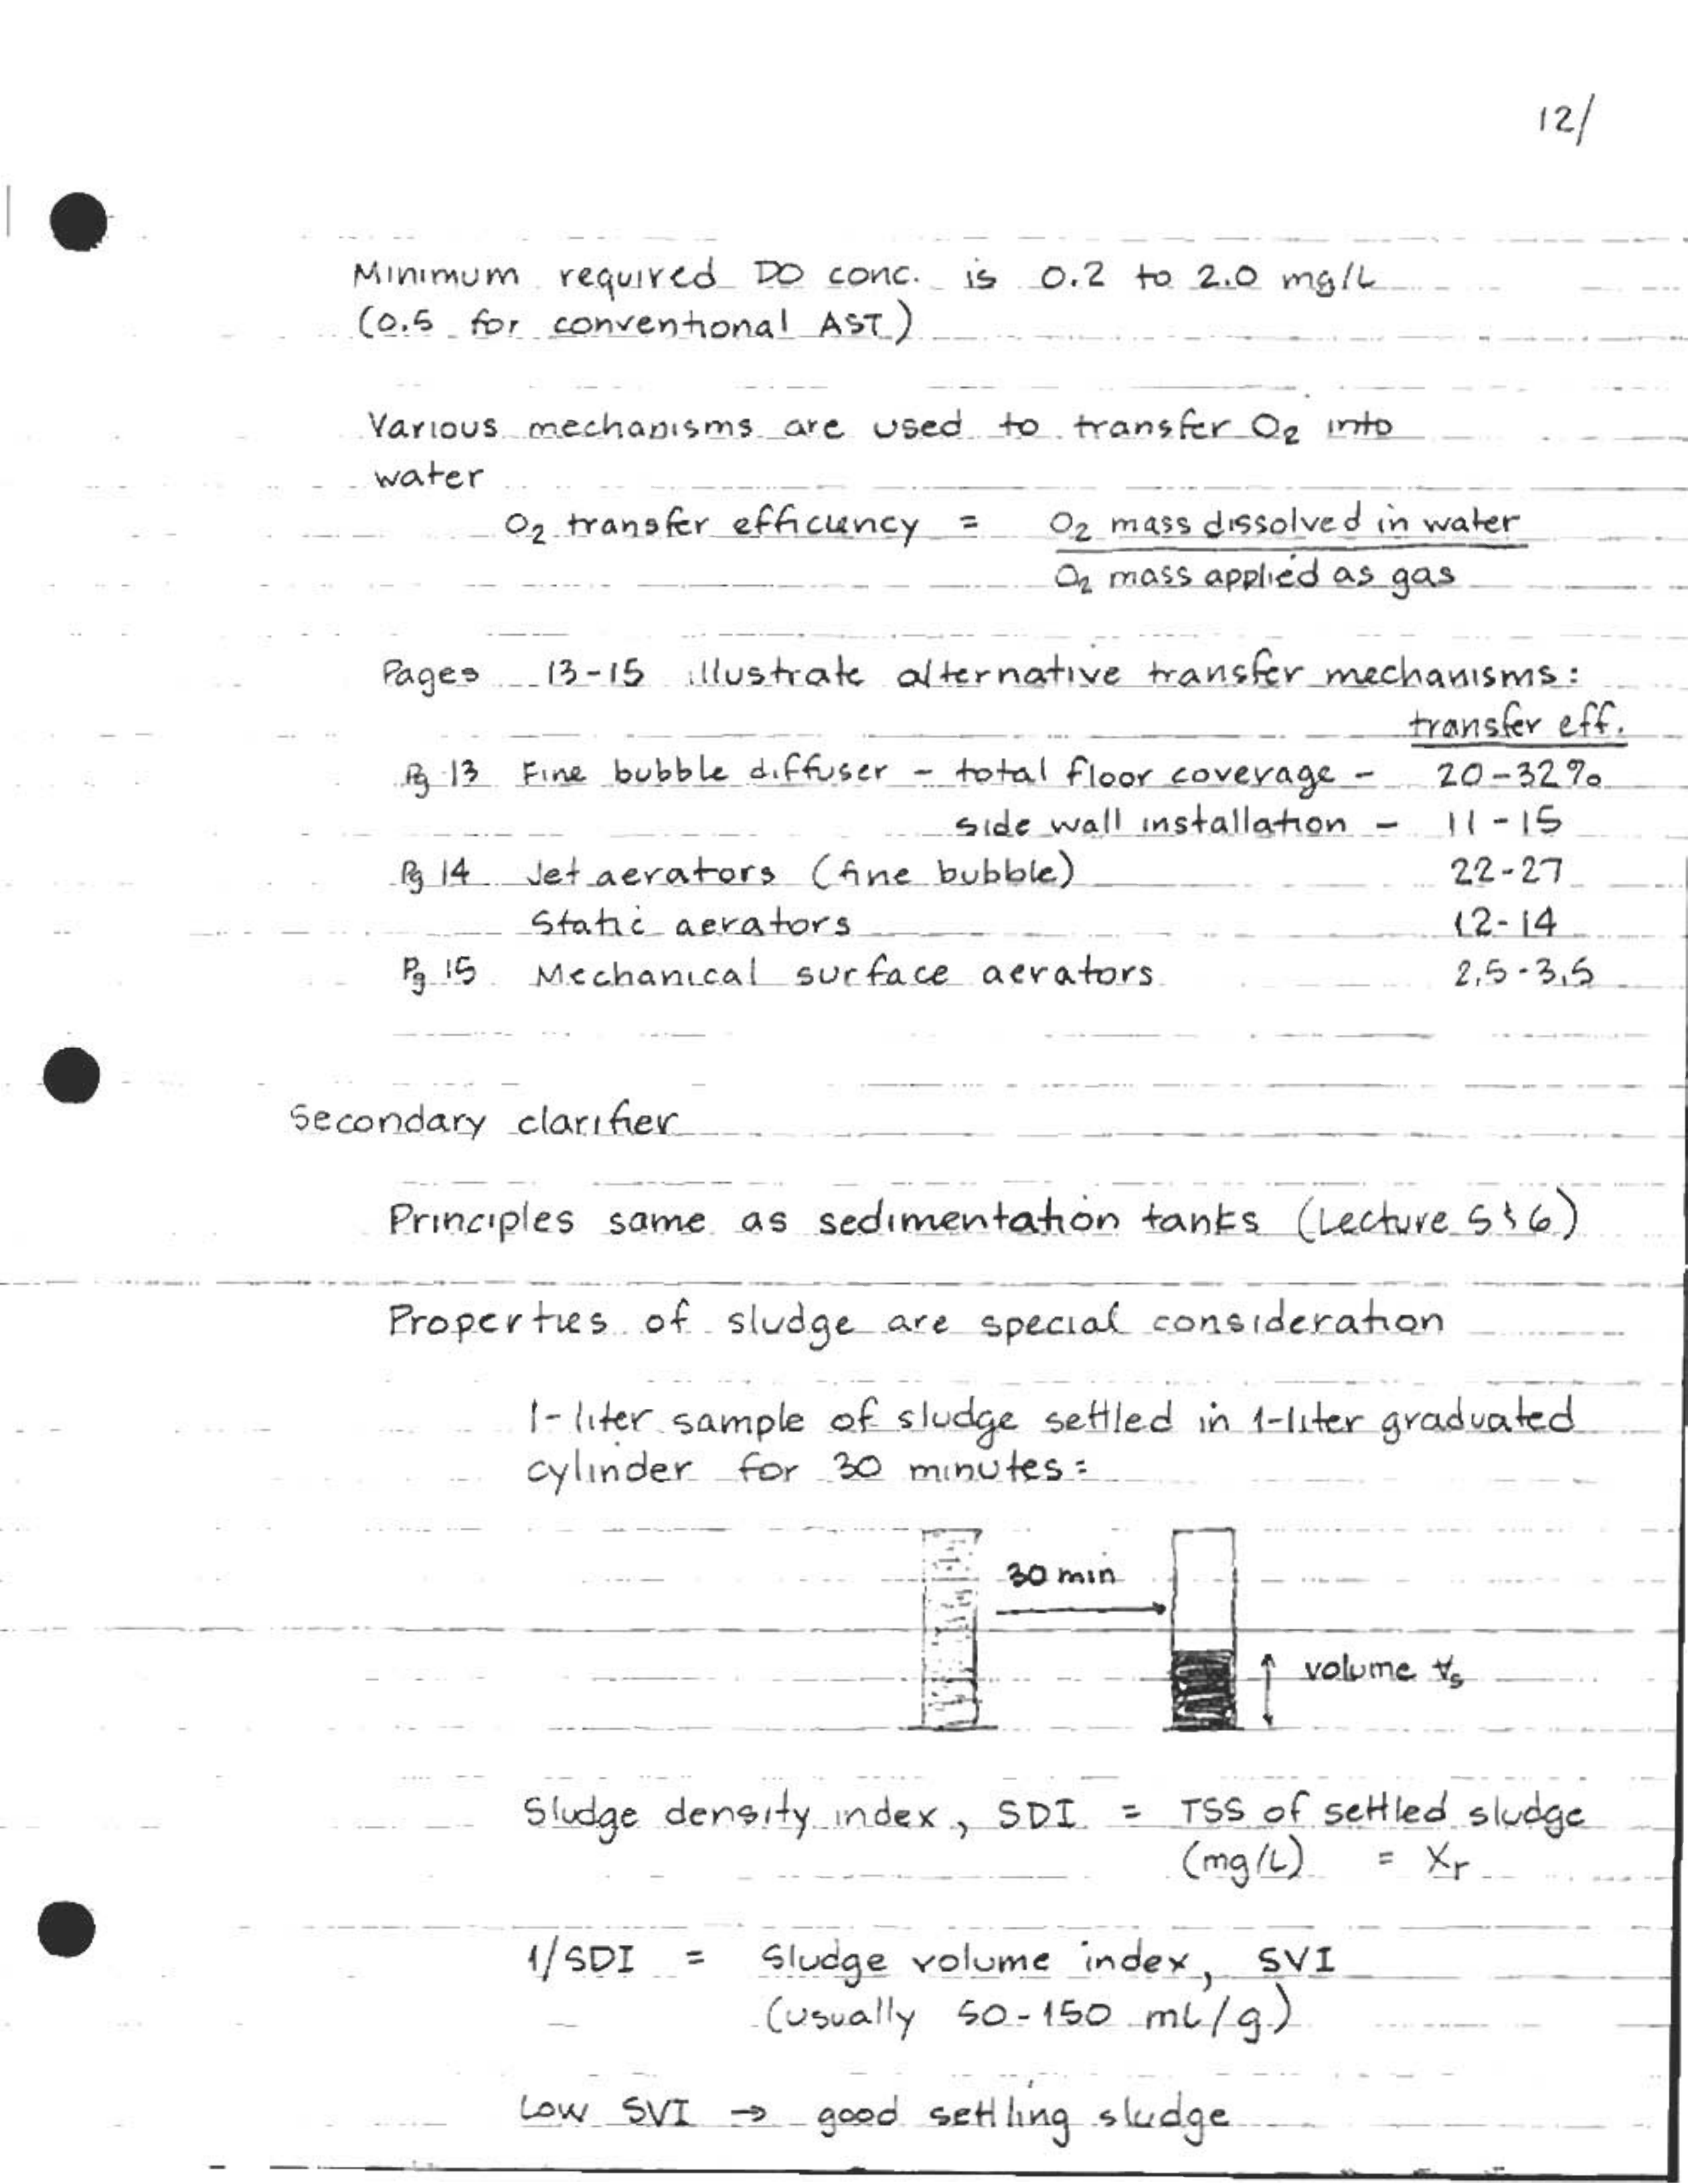 12/
Minimum required DO conc. is 0.2 to 2.0 mg/L
(0.5 for conventional AST)
Various mechanisms are used to transfer O₂ into
water
O₂ transfer efficiency = O₂ mass dissolved in water
O₂ mass applied as gas
Pages 13-15 illustrate alternative transfer mechanisms:
transfer eff.
Pg 13 Fine bubble diffuser - total floor coverage - 20-32%
side wall installation - 11-15
Pg 14 Jet aerators (fine bubble) 22-27
Static aerators 12-14
Pg 15 Mechanical surface aerators 2.5-3.5
Secondary clarifier
Principles same as sedimentation tanks (Lecture 5 & 6)
Properties of sludge are special consideration
1-liter sample of sludge settled in 1-liter graduated
cylinder for 30 minutes:
30 min
volume ∀s
Sludge density index, SDI = TSS of settled sludge
(mg/L) = Xr
1/SDI = Sludge volume index, SVI
(usually 50-150 mL/g)
Low SVI → good settling sludge